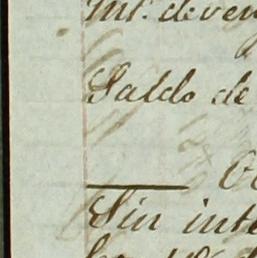 Int. deven
Saldo de
Sin inte